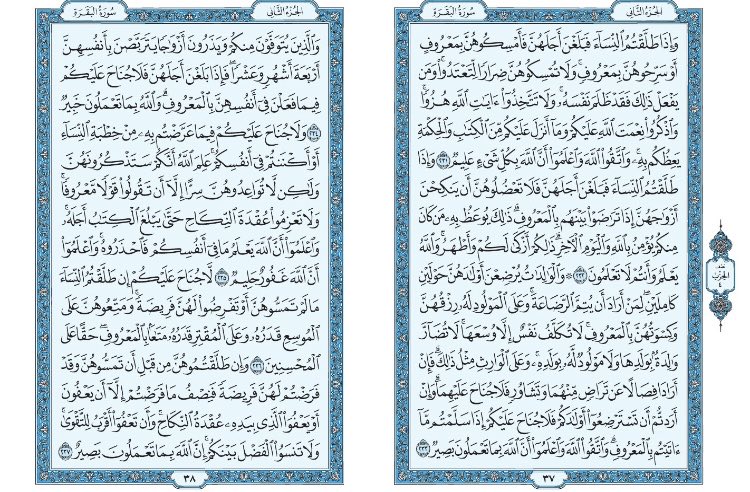 الجُزْءُ الثَّانِي
سُورَةُ البَقَرَةِ
وَإِذَا طَلَّقْتُمُ ٱلنِّسَآءَ فَبَلَغْنَ أَجَلَهُنَّ فَأَمْسِكُوهُنَّ بِمَعْرُوفٍ
أَوْ سَرِّحُوهُنَّ بِمَعْرُوفٍۚ وَلَا تُمْسِكُوهُنَّ ضِرَارًا لِّتَعْتَدُوا۟ۚ وَمَن
يَفْعَلْ ذَٰلِكَ فَقَدْ ظَلَمَ نَفْسَهُۥۚ وَلَا تَتَّخِذُوٓا۟ ءَايَٰتِ ٱللَّهِ هُزُوًاۚ
وَٱذْكُرُوا۟ نِعْمَتَ ٱللَّهِ عَلَيْكُمْ وَمَآ أَنزَلَ عَلَيْكُم مِّنَ ٱلْكِتَٰبِ وَٱلْحِكْمَةِ
يَعِظُكُم بِهِۦۚ وَٱتَّقُوا۟ ٱللَّهَ وَٱعْلَمُوٓا۟ أَنَّ ٱللَّهَ بِكُلِّ شَىْءٍ عَلِيمٌ ٢٣١ وَإِذَا
طَلَّقْتُمُ ٱلنِّسَآءَ فَبَلَغْنَ أَجَلَهُنَّ فَلَا تَعْضُلُوهُنَّ أَن يَنكِحْنَ
أَزْوَٰجَهُنَّ إِذَا تَرَٰضَوْا۟ بَيْنَهُم بِٱلْمَعْرُوفِۗ ذَٰلِكَ يُوعَظُ بِهِۦ مَن كَانَ
مِنكُمْ يُؤْمِنُ بِٱللَّهِ وَٱلْيَوْمِ ٱلْءَاخِرِۗ ذَٰلِكُمْ أَزْكَىٰ لَكُمْ وَأَطْهَرُۚ وَٱللَّهُ
يَعْلَمُ وَأَنتُمْ لَا تَعْلَمُونَ ٢٣٢ ۞ وَٱلْوَٰلِدَٰتُ يُرْضِعْنَ أَوْلَٰدَهُنَّ حَوْلَيْنِ
كَامِلَيْنِۖ لِمَنْ أَرَادَ أَن يُتِمَّ ٱلرَّضَاعَةَۚ وَعَلَى ٱلْمَوْلُودِ لَهُۥ رِزْقُهُنَّ
وَكِسْوَتُهُنَّ بِٱلْمَعْرُوفِۚ لَا تُكَلَّفُ نَفْسٌ إِلَّا وُسْعَهَاۚ لَا تُضَآرَّ
وَٰلِدَةٌۢ بِوَلَدِهَا وَلَا مَوْلُودٌ لَّهُۥ بِوَلَدِهِۦۚ وَعَلَى ٱلْوَارِثِ مِثْلُ ذَٰلِكَۗ فَإِنْ
أَرَادَا فِصَالًا عَن تَرَاضٍ مِّنْهُمَا وَتَشَاوُرٍ فَلَا جُنَاحَ عَلَيْهِمَاۗ وَإِنْ
أَرَدتُّمْ أَن تَسْتَرْضِعُوٓا۟ أَوْلَٰدَكُمْ فَلَا جُنَاحَ عَلَيْكُمْ إِذَا سَلَّمْتُم مَّآ
ءَاتَيْتُم بِٱلْمَعْرُوفِۗ وَٱتَّقُوا۟ ٱللَّهَ وَٱعْلَمُوٓا۟ أَنَّ ٱللَّهَ بِمَا تَعْمَلُونَ بَصِيرٌ ٢٣٣
٣٧
الحِزْب
٤
الجُزْءُ الثَّانِي
سُورَةُ البَقَرَةِ
وَٱلَّذِينَ يُتَوَفَّوْنَ مِنكُمْ وَيَذَرُونَ أَزْوَٰجًا يَتَرَبَّصْنَ بِأَنفُسِهِنَّ
أَرْبَعَةَ أَشْهُرٍ وَعَشْرًاۖ فَإِذَا بَلَغْنَ أَجَلَهُنَّ فَلَا جُنَاحَ عَلَيْكُمْ
فِيمَا فَعَلْنَ فِىٓ أَنفُسِهِنَّ بِٱلْمَعْرُوفِۗ وَٱللَّهُ بِمَا تَعْمَلُونَ خَبِيرٌ
٢٣٤ وَلَا جُنَاحَ عَلَيْكُمْ فِيمَا عَرَّضْتُم بِهِۦ مِنْ خِطْبَةِ ٱلنِّسَآءِ
أَوْ أَكْنَنتُمْ فِىٓ أَنفُسِكُمْۚ عَلِمَ ٱللَّهُ أَنَّكُمْ سَتَذْكُرُونَهُنَّ
وَلَٰكِن لَّا تُوَاعِدُوهُنَّ سِرًّا إِلَّآ أَن تَقُولُوا۟ قَوْلًا مَّعْرُوفًاۚ
وَلَا تَعْزِمُوا۟ عُقْدَةَ ٱلنِّكَاحِ حَتَّىٰ يَبْلُغَ ٱلْكِتَٰبُ أَجَلَهُۥۚ
وَٱعْلَمُوٓا۟ أَنَّ ٱللَّهَ يَعْلَمُ مَا فِىٓ أَنفُسِكُمْ فَٱحْذَرُوهُۚ وَٱعْلَمُوٓا۟
أَنَّ ٱللَّهَ غَفُورٌ حَلِيمٌ ٢٣٥ لَّا جُنَاحَ عَلَيْكُمْ إِن طَلَّقْتُمُ ٱلنِّسَآءَ
مَا لَمْ تَمَسُّوهُنَّ أَوْ تَفْرِضُوا۟ لَهُنَّ فَرِيضَةًۚ وَمَتِّعُوهُنَّ عَلَى
ٱلْمُوسِعِ قَدَرُهُۥ وَعَلَى ٱلْمُقْتِرِ قَدَرُهُۥ مَتَٰعًۢا بِٱلْمَعْرُوفِۖ حَقًّا عَلَى
ٱلْمُحْسِنِينَ ٢٣٦ وَإِن طَلَّقْتُمُوهُنَّ مِن قَبْلِ أَن تَمَسُّوهُنَّ وَقَدْ
فَرَضْتُمْ لَهُنَّ فَرِيضَةً فَنِصْفُ مَا فَرَضْتُمْ إِلَّآ أَن يَعْفُونَ
أَوْ يَعْفُوَا۟ ٱلَّذِى بِيَدِهِۦ عُقْدَةُ ٱلنِّكَاحِۚ وَأَن تَعْفُوٓا۟ أَقْرَبُ لِلتَّقْوَىٰۚ
وَلَا تَنسَوُا۟ ٱلْفَضْلَ بَيْنَكُمْۚ إِنَّ ٱللَّهَ بِمَا تَعْمَلُونَ بَصِيرٌ ٢٣٧
٣٨